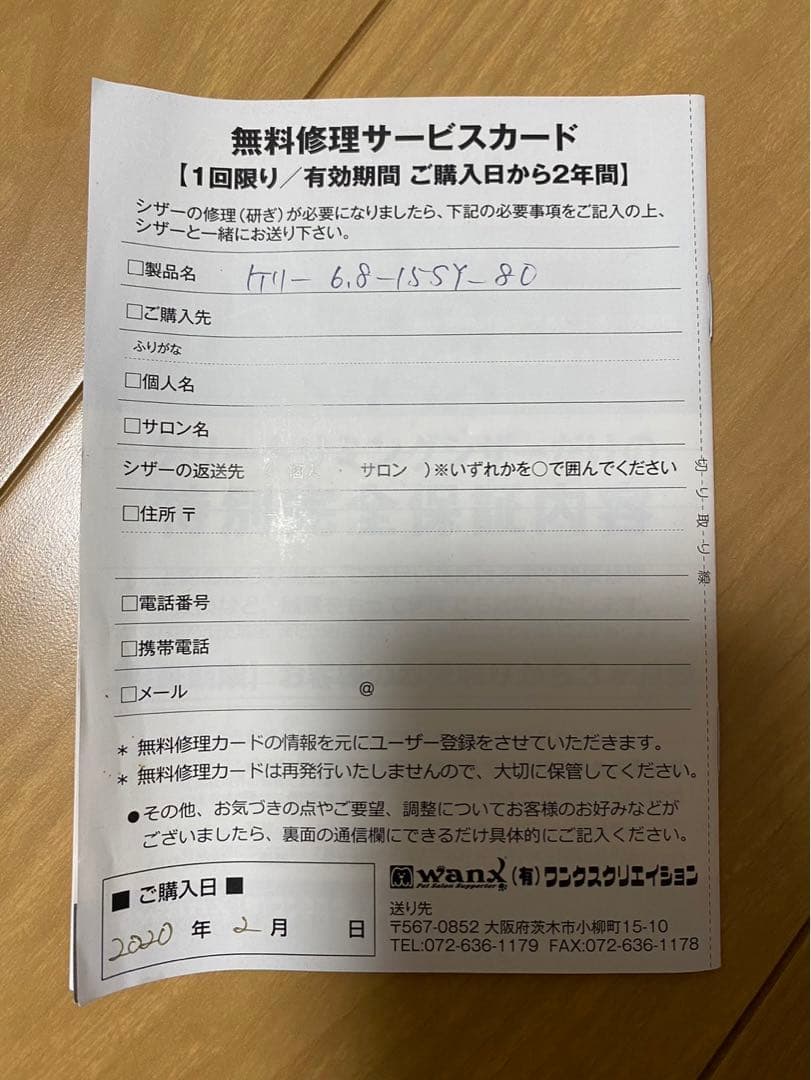 無料修理サービスカード
【1回限り／有効期間 ご購入日から2年間】
シザーの修理（研ぎ）が必要になりましたら、下記の必要事項をご記入の上、
シザーと一緒にお送り下さい。
□製品名 ケリー 6.8-15SY-80
□ご購入先
ふりがな
□個人名
□サロン名
シザーの返送先 個人 ・ サロン ）※いずれかを○で囲んでください
□住所 〒
□電話番号
□携帯電話
□メール @
＊ 無料修理カードの情報を元にユーザー登録をさせていただきます。
＊ 無料修理カードは再発行いたしませんので、大切に保管してください。
●その他、お気づきの点やご要望、調整についてお客様のお好みなどが
ございましたら、裏面の通信欄にできるだけ具体的にご記入ください。
■ ご購入日 ■
2020 年 2 月 日
wanx Pet Salon Supporter （有）ワンクスクリエイション
送り先
〒567-0852 大阪府茨木市小柳町15-10
TEL:072-636-1179 FAX:072-636-1178
切り取り線